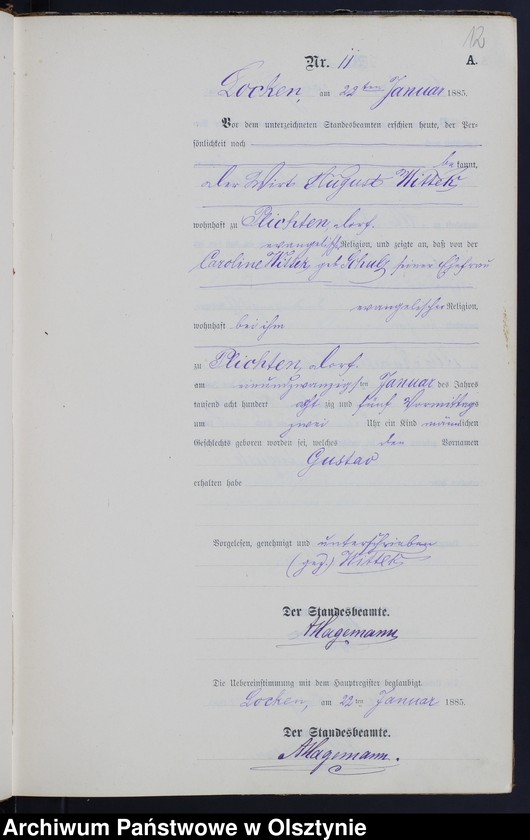 12
Nr. 11 A.
Locken, am 22ten Januar 1885.
Vor dem unterzeichneten Standesbeamten erschien heute, der Per-
sönlichkeit nach
be kannt,
der Wirt August Wittek
wohnhaft zu Plichten, Dorf.
evangelisch. Religion, und zeigte an, daß von der
Caroline Wittek, geb. Schulz seiner Ehefrau
evangelischer Religion,
wohnhaft bei ihm
zu Plichten, Dorf.
am ten Januar des Jahres
tausend acht hundert acht zig und fünf Vormittags
um zwei Uhr ein Kind männlichen
Geschlechts geboren worden sei, welches den Vornamen
Gustav
erhalten habe
Vorgelesen, genehmigt und unterschrieben
(gez.) Wittek
Der Standesbeamte.
AHagemann
Die Uebereinstimmung mit dem Hauptregister beglaubigt.
Locken, am 22ten Januar 1885.
Der Standesbeamte.
AHagemann.
Archiwum Państwowe w Olsztynie